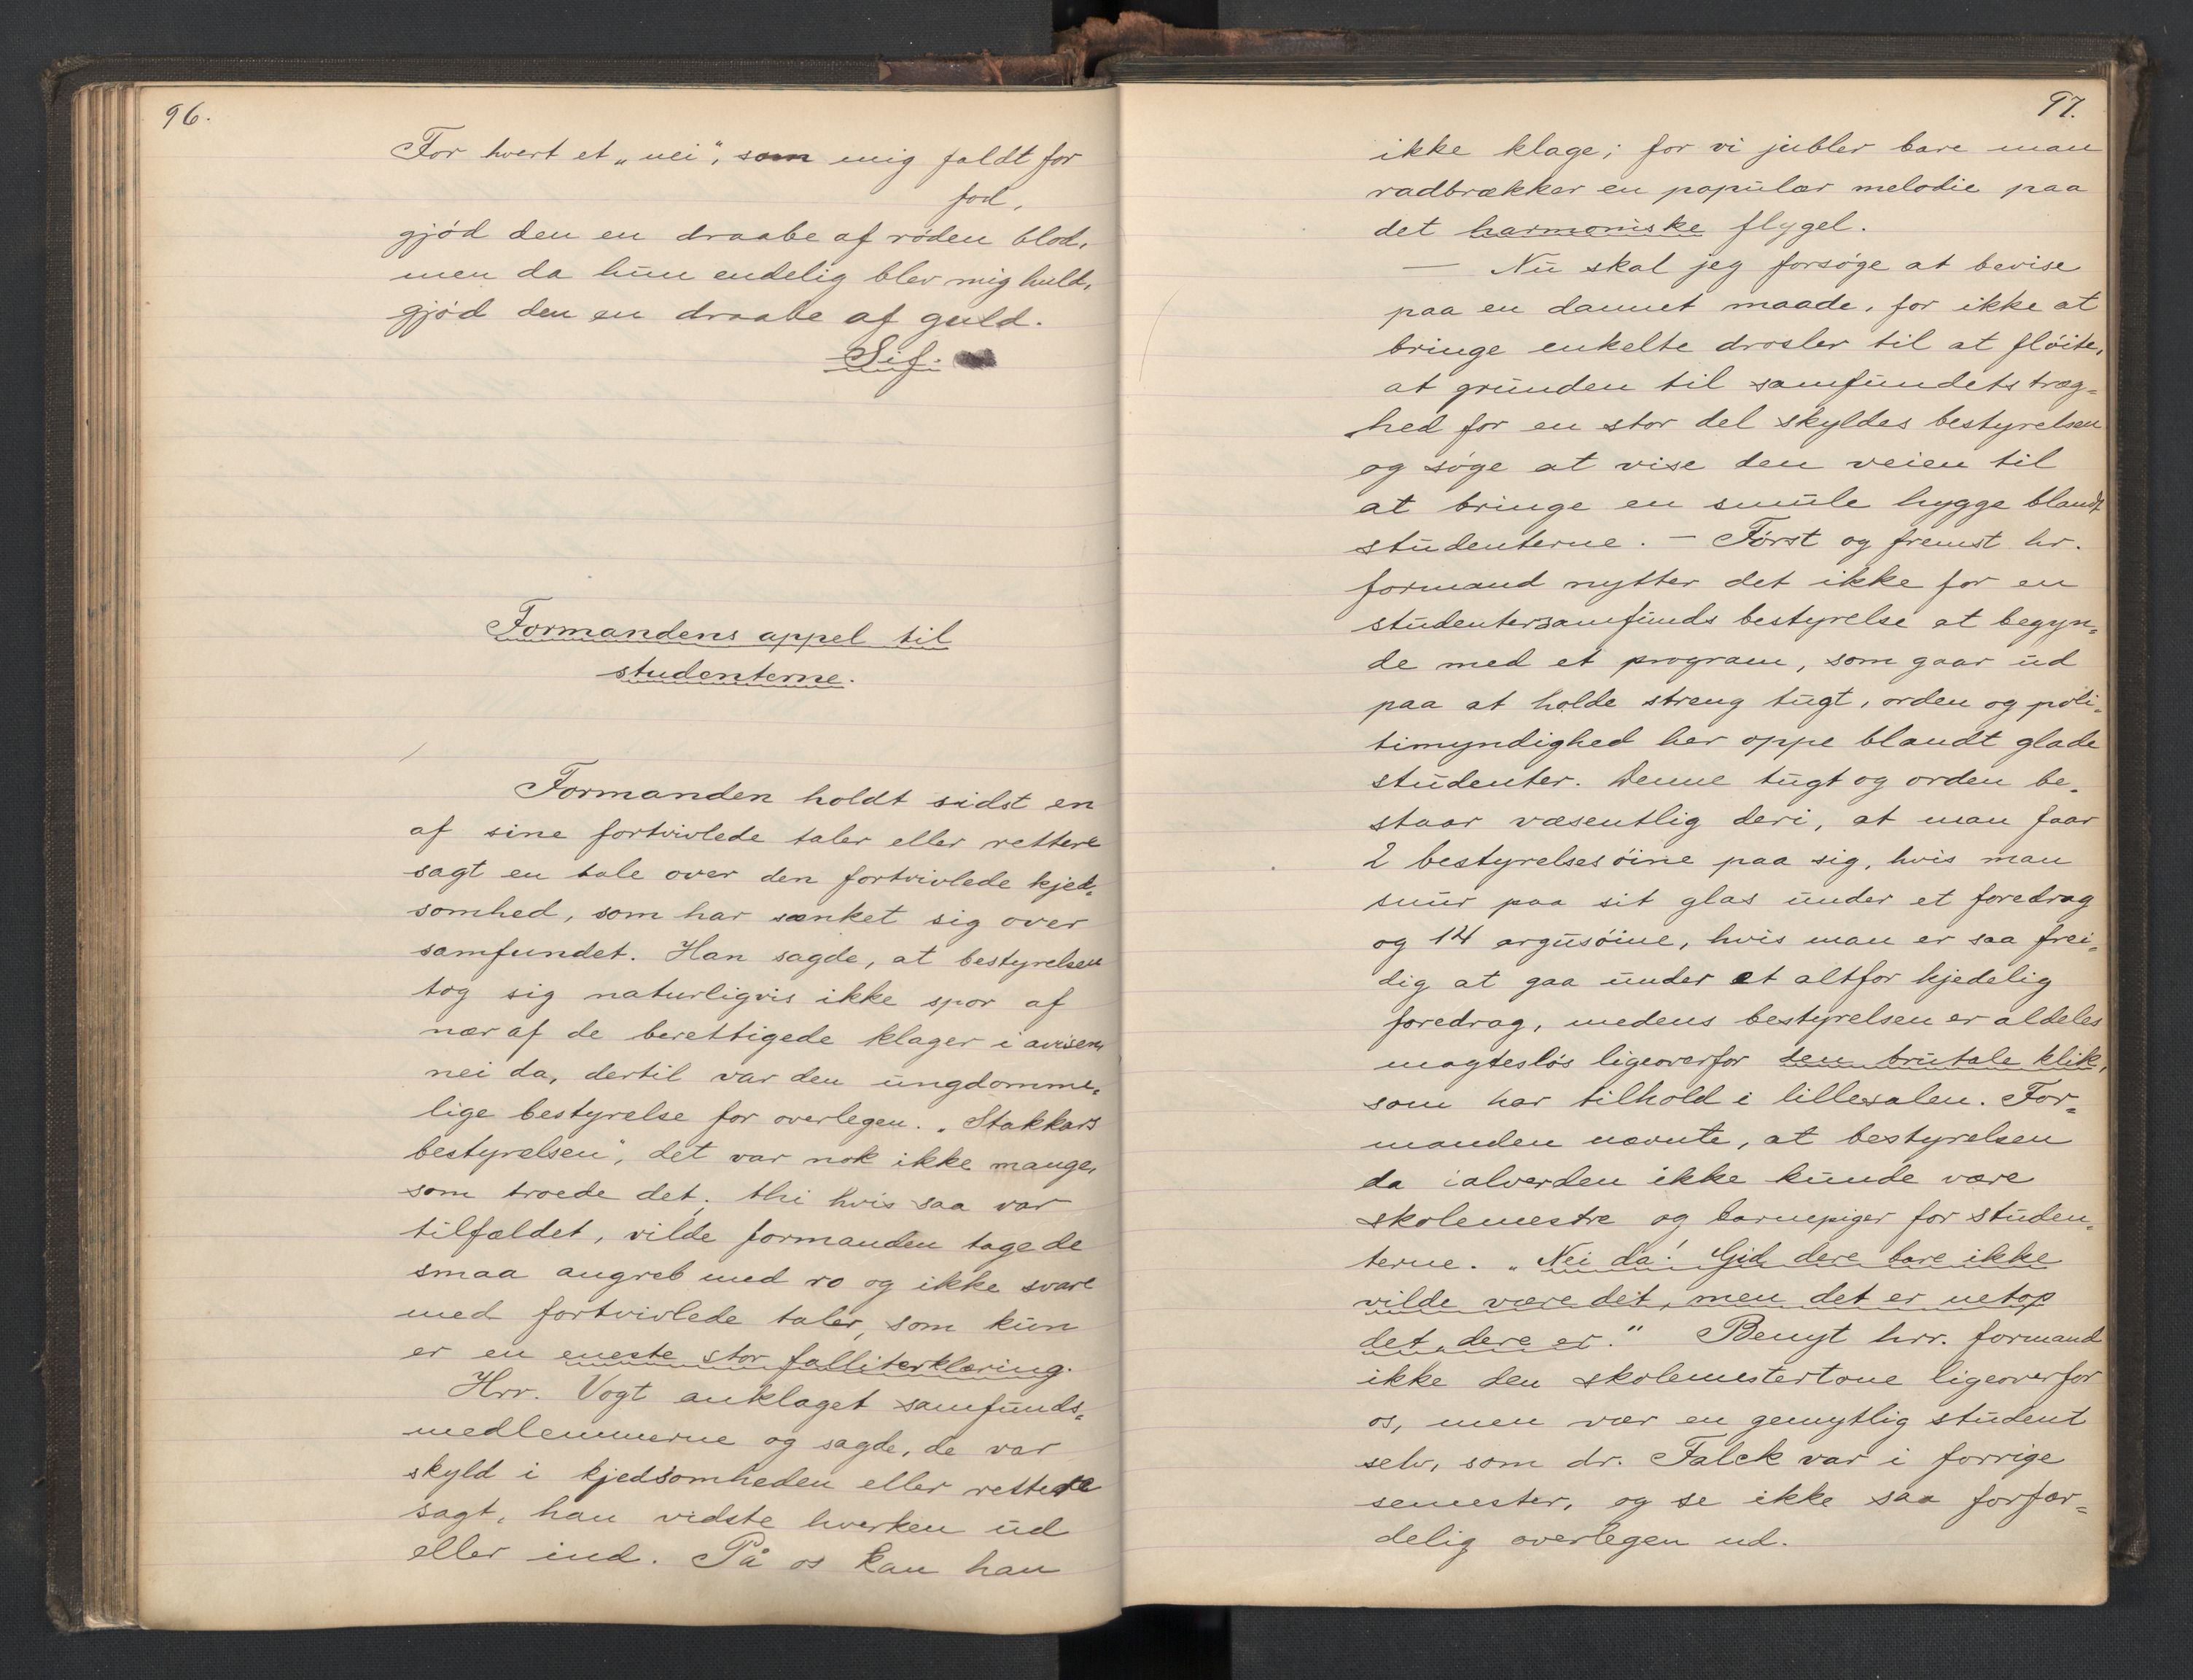 96.
For hvert et „nei", som mig faldt for
fod,
gjód den en draabe af róden blod,
men da hun endelig blev mig huld,
gjód den en draabe af guld.
Sif.
Formandens appel til
studenterne.
Formanden holdt sidst en
af sine fortvivlede taler eller rettere
sagt en tale over den fortvivlede kjed-
somhed, som har sænket sig over
samfundet. Han sagde, at bestyrelsen
tog sig naturligvis ikke spor af
nær af de berettigede klager i avisen,
nei da, dertil var den ungdomme-
lige bestyrelse for overlegen. „Stakkars
bestyrelsen", det var nok ikke mange,
som troede det, thi hvis saa var
tilfældet, vilde formanden tage de
smaa angreb med ro og ikke svare
med fortvivlede taler, som kun
er en eneste stor falliterklæring.
Hrr. Vogt anklaget samfunds-
medlemmerne og sagde, de var
skyld i kjedsomheden eller rettere
sagt, han vidste hverken ud
eller ind. På os kan han
97.
ikke klage; for vi jubler bare man
radbrækker en populær melodie paa
det harmoniske flygel.
— Nu skal jeg forsøge at bevise
paa en dannet maade, for ikke at
bringe enkelte drosler til at flóite,
at grunden til samfundets træg-
hed for en stor del skyldes bestyrelsen
og søge at vise den veien til
at bringe en smule hygge blandt
studenterne. — Fórst og fremst hr.
formand nytter det ikke for en
studentersamfunds bestyrelse at begyn-
de med et program, som gaar ud
paa at holde streng tugt, orden og poli-
timyndighed her oppe blandt glade
studenter. Denne tugt og orden be-
staar væsentlig deri, at man faar
2 bestyrelsesóine paa sig, hvis man
snur paa sit glas under et foredrag
og 14 argusóine, hvis man er saa frei-
dig at gaa under et altfor kjedelig
foredrag, medens bestyrelsen er aldeles
magteslós ligeoverfor den brutale klik,
som har tilhold i lillesalen. For-
manden nævnte, at bestyrelsen
da ialverden ikke kunde være
skolemestre og barnepiger for studen-
terne. „Nei da! Gid dere bare ikke
vilde være det, men det er netop
det dere er." Benyt hrr. formand
ikke den skolemestertone ligeoverfor
os, men vær en gemytlig student
selv, som dr. Falck var i forrige
semester, og se ikke saa forfær-
delig overlegen ud.